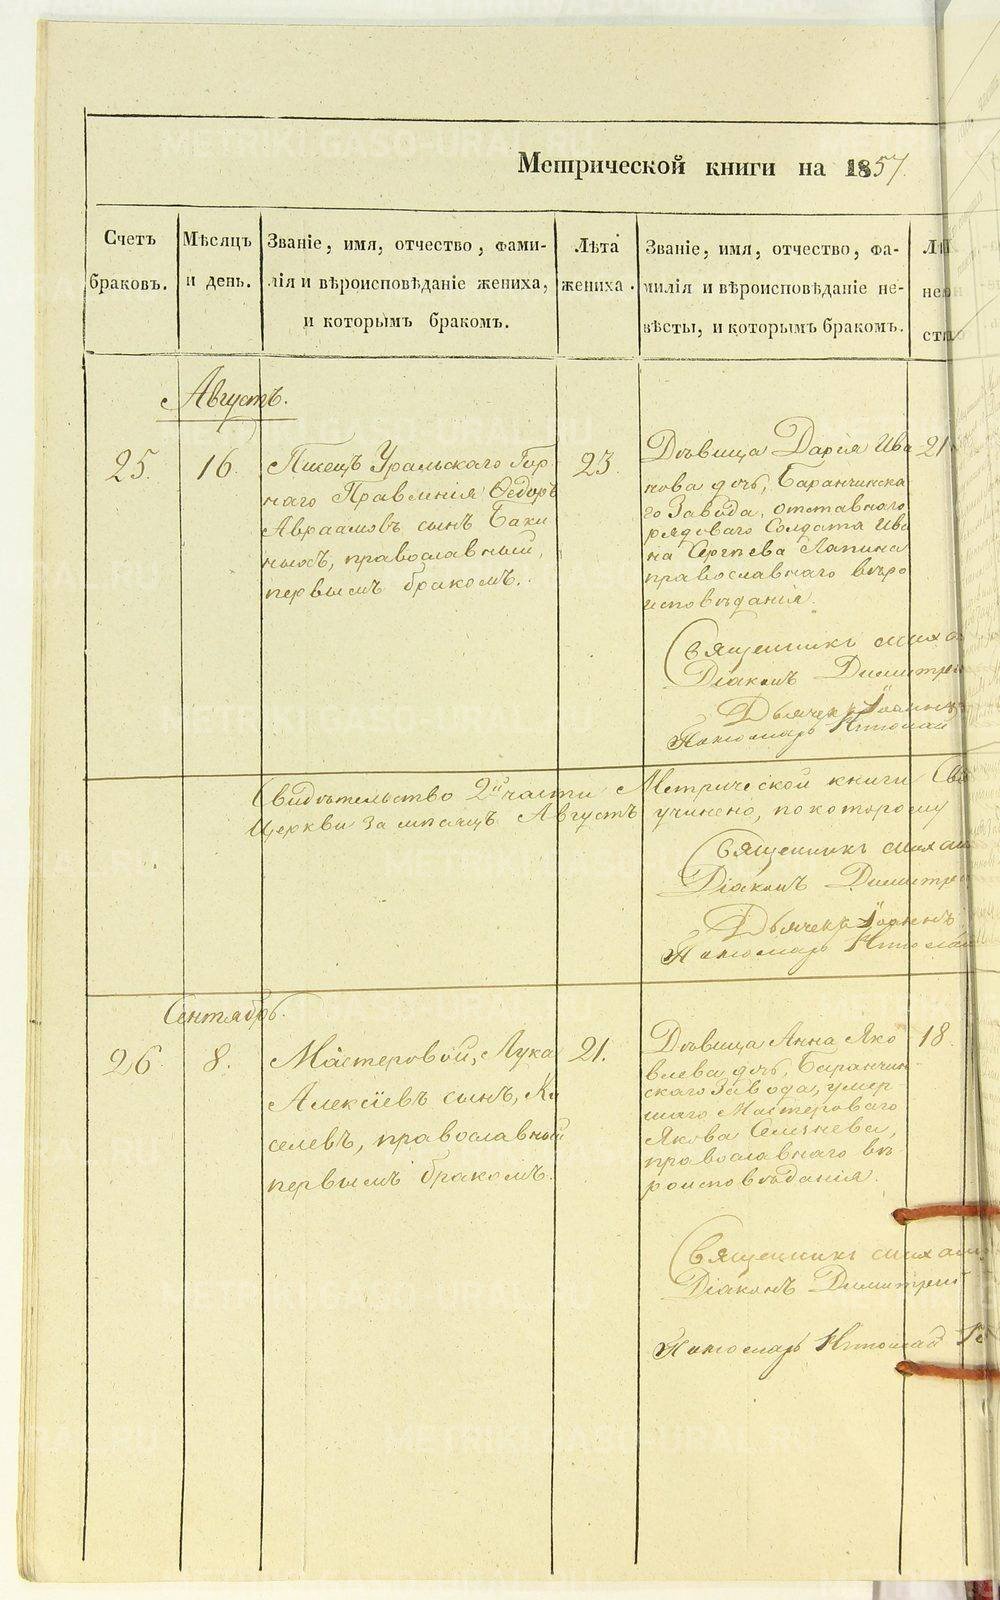 Метрической книги на 1857.
Счетъ браковъ.
Мѣсяцъ и день.
Званіе, имя, отчество, фами-
лія и вѣроисповѣданіе жениха,
и которымъ бракомъ.
Лѣта жениха.
Званіе, имя, отчество, фа-
милія и вѣроисповѣданіе не-
вѣсты, и которымъ бракомъ.
Августъ.
25.
16.
Писецъ Уральскаго Гор
наго Правленія Ѳедоръ
Авраамовъ сынъ Баки
ныхъ, православный,
первымъ бракомъ.
23.
Дѣвица Дарія Ива
нова дочь, Баранчинска
го Завода, отставнаго
рядоваго Солдата Ива
на Сергѣева Лапина
православнаго вѣро
исповѣданія.
21
Священникъ
Діаконъ Димитрей
Дьячекъ Іоаннъ
Пономарь Николай
Свидѣтельство 2й части Метрической книги
Церкви за мѣсяцъ Августъ учинено, по которому
Священникъ
Діаконъ Димитрей
Дьячекъ Іоаннъ
Пономарь Николай
Сентябрь.
26
8.
Мастеровой, Лука
Алексіевъ сынъ, Ки
селевъ, православный
первымъ бракомъ.
21.
Дѣвица Анна Яко
влева дочь, Баранчин-
скаго Завода, умер
шаго Мастероваго
Якова Селезнева,
православнаго вѣ
роисповѣданія.
18.
Священникъ
Діаконъ Димитрей
Пономарь Николай
METRIKI.GASO-URAL.RU